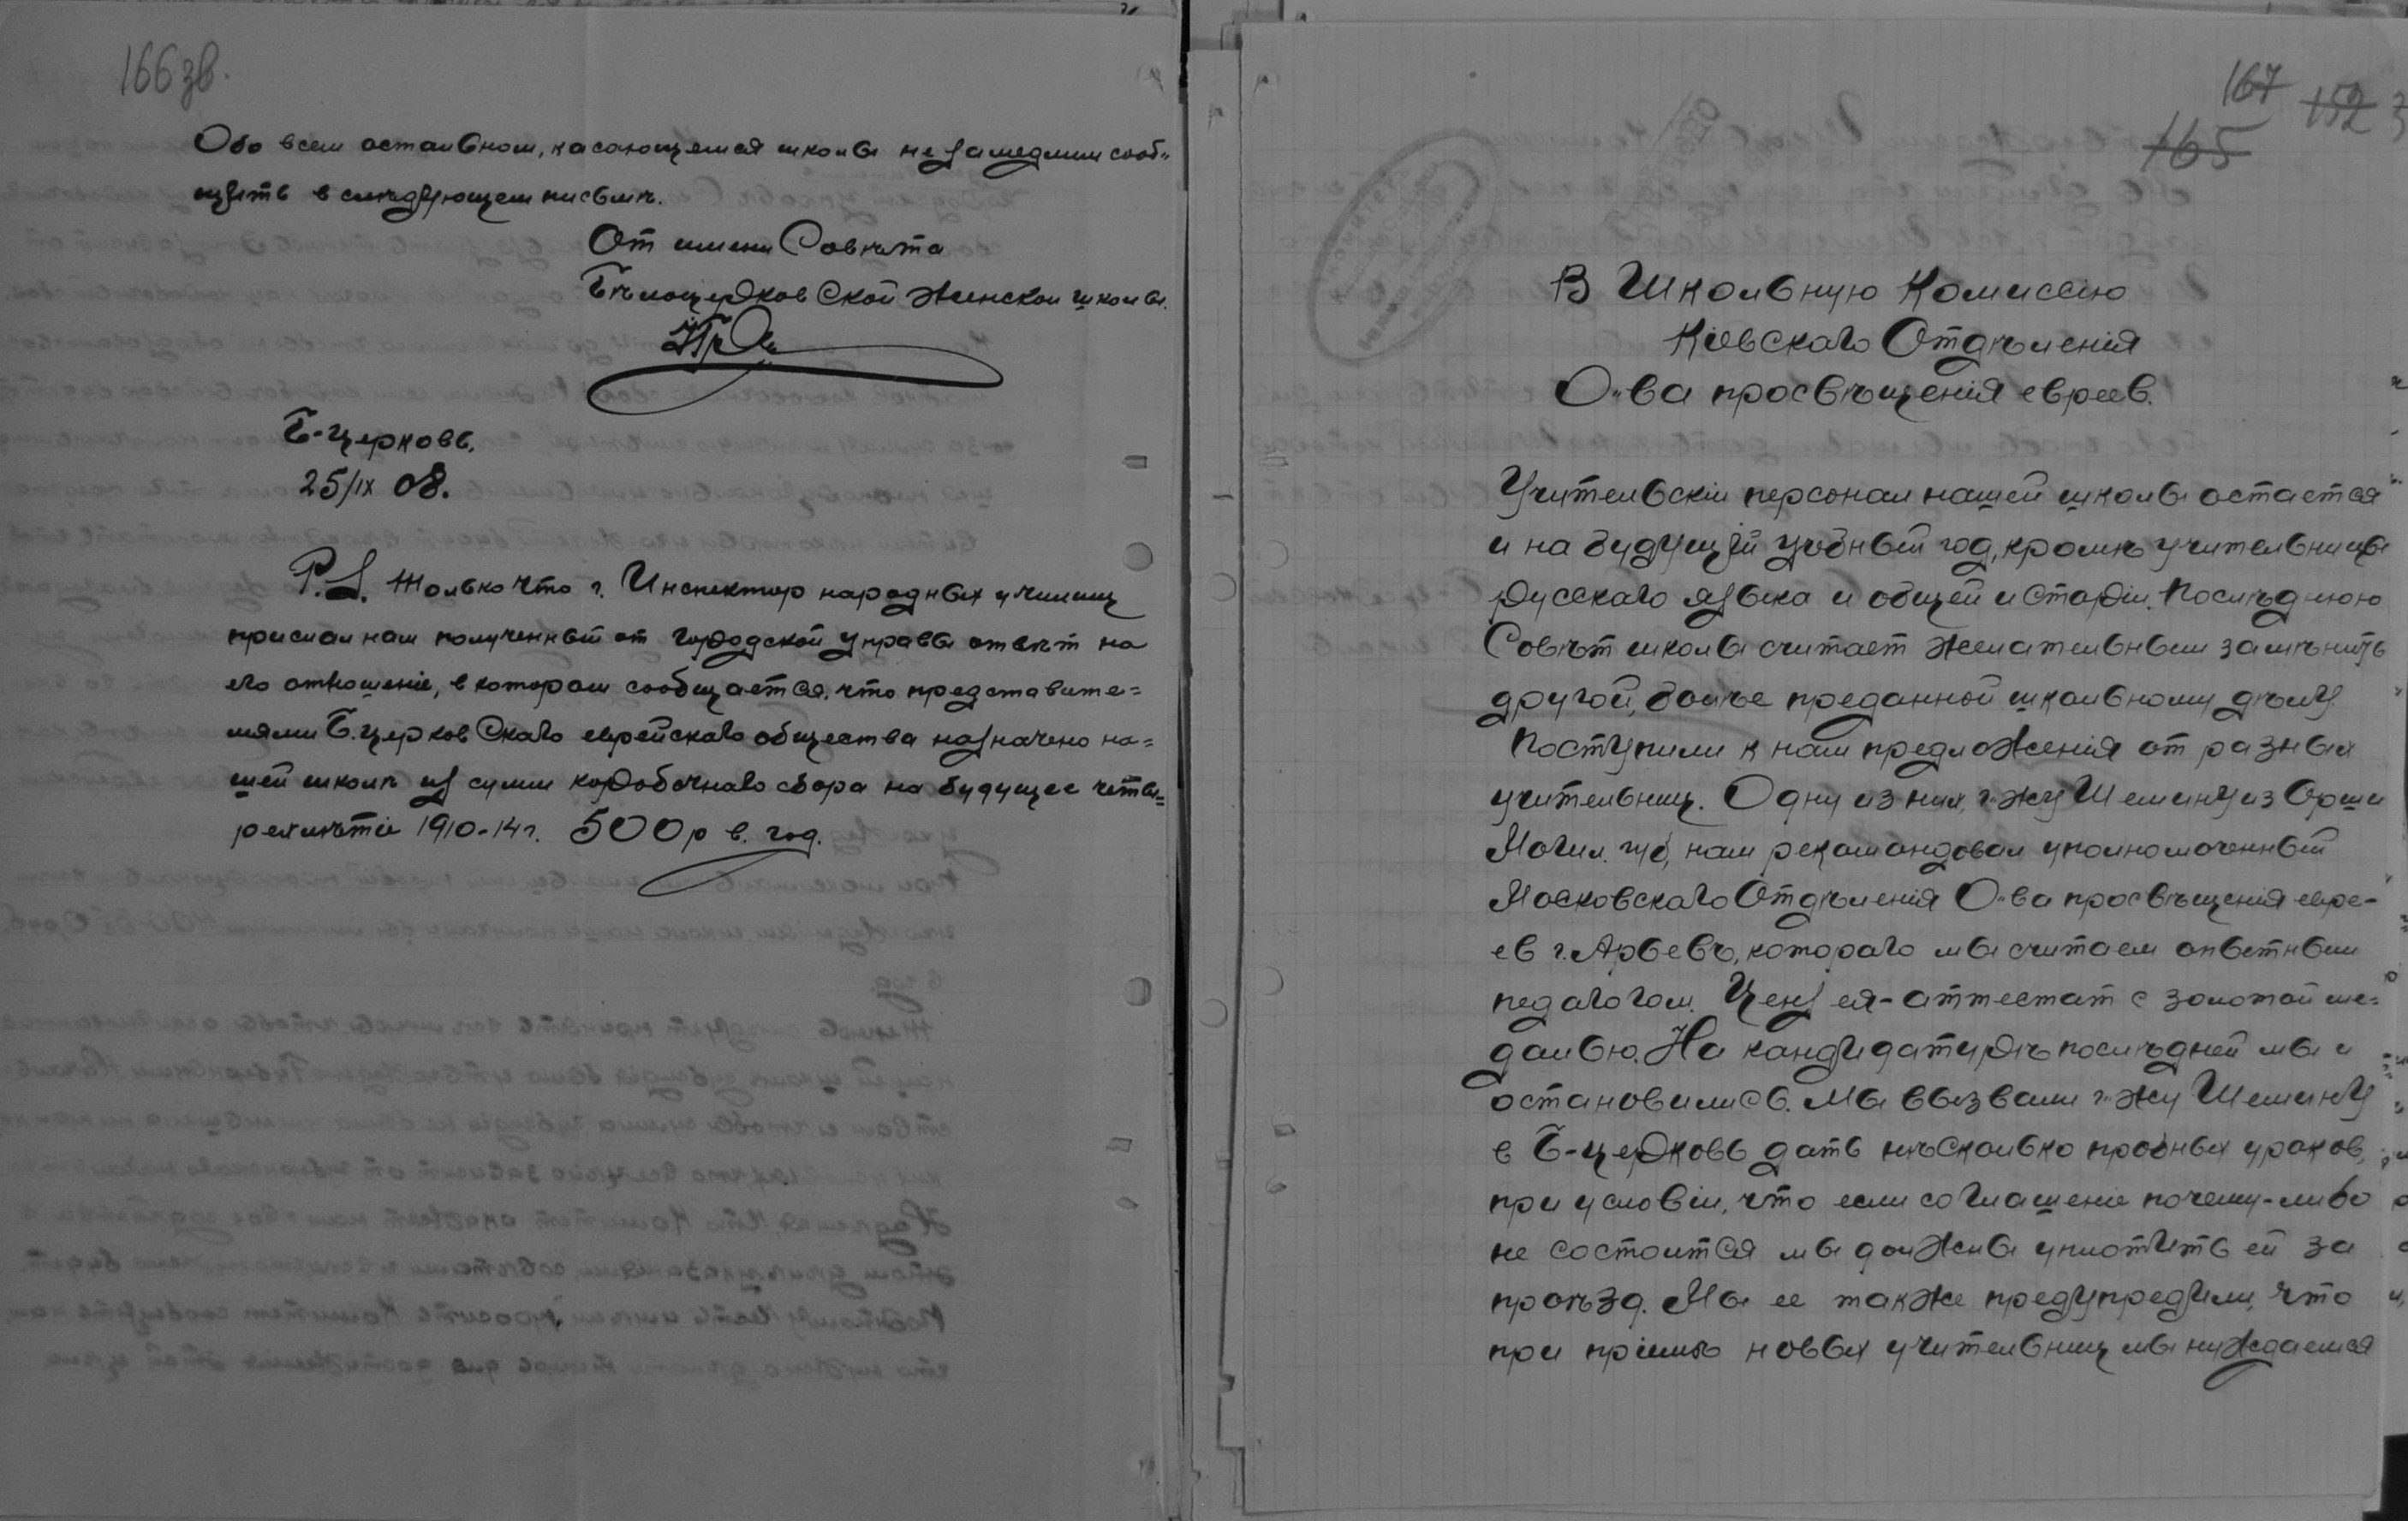 166 зв.
Обо всем остальном, касающемся школы не замедлим сооб-
щить в следующем письмѣ.
От имени Совѣта
Бѣлоцерковской женской школы.
Б-церковь.
25/IX 08.
P.S. Только что г. Инспектор народных училищ
прислал нам полученный от городской управы отвѣт на
его отношеніе, в котором сообщается, что представите=
лями Б.церковскаго еврейскаго общества назначено на=
шей школѣ из сумм коробочнаго сбора на будущее четы=
рехлѣтіе 1910-14 г. 500 р в. год.
167
152
165
В Школьную Комиссію
Кіевскаго Отдѣленія
О-ва просвѣщенія евреев.
Учительскій персонал нашей школы остается
и на будущій учебный год, кромѣ учительницы
русскаго языка и общей исторіи. Послѣднюю
Совѣт школы считает желательным замѣнить
другой, болѣе преданной школьному дѣлу.
Поступили к нам предложенія от разных
учительниц. Одну из них, г-жу Шемину из Орши
Могил. губ, нам рекомандовал уполномоченный
Московскаго Отдѣленія О-ва просвѣщенія евре-
ев г. Арьевъ, котораго мы считаем опытным
педагогом. Ценз ея - аттестат с золотой ме=
далью. На кандидатурѣ послѣдней мы и
остановились. Мы вызвали г-жу Шемину
в Б-церковь дать нѣсколько пробных уроков,
при условіи, что если соглашеніе почему-либо
не состоится мы должны уплотить ей за
проѣзд. Мы ее также предупредили, что
при пріемѣ новых учительниц мы нуждаемся